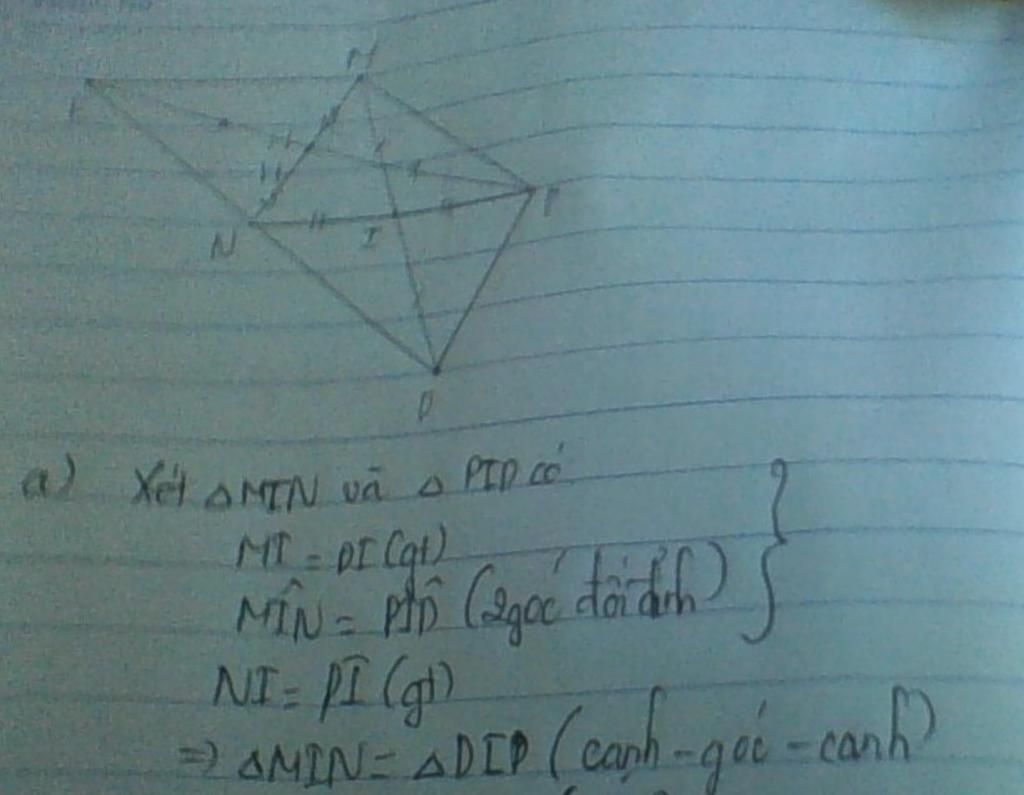 M
N
I
P
D
a) Xét △MIN và △PID có
MI = DI (gt)
MÎN = PÎD (2 góc đối đỉnh)
NI = PI (gt)
=> △MIN = △DIP (cạnh - góc - cạnh)